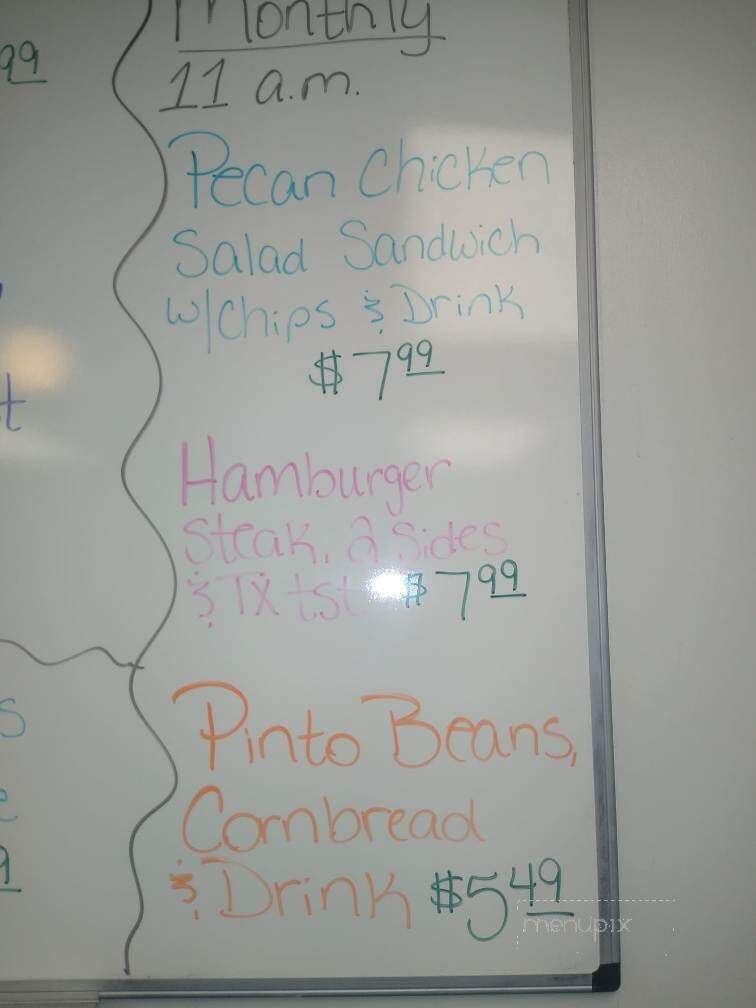 Monthly
11 a.m.
Pecan Chicken
Salad Sandwich
w/Chips & Drink
$7.99
Hamburger
Steak, 2 Sides
& TX tst $7.99
Pinto Beans,
Cornbread
& Drink $5.49
menupix
99
t
s
e
9